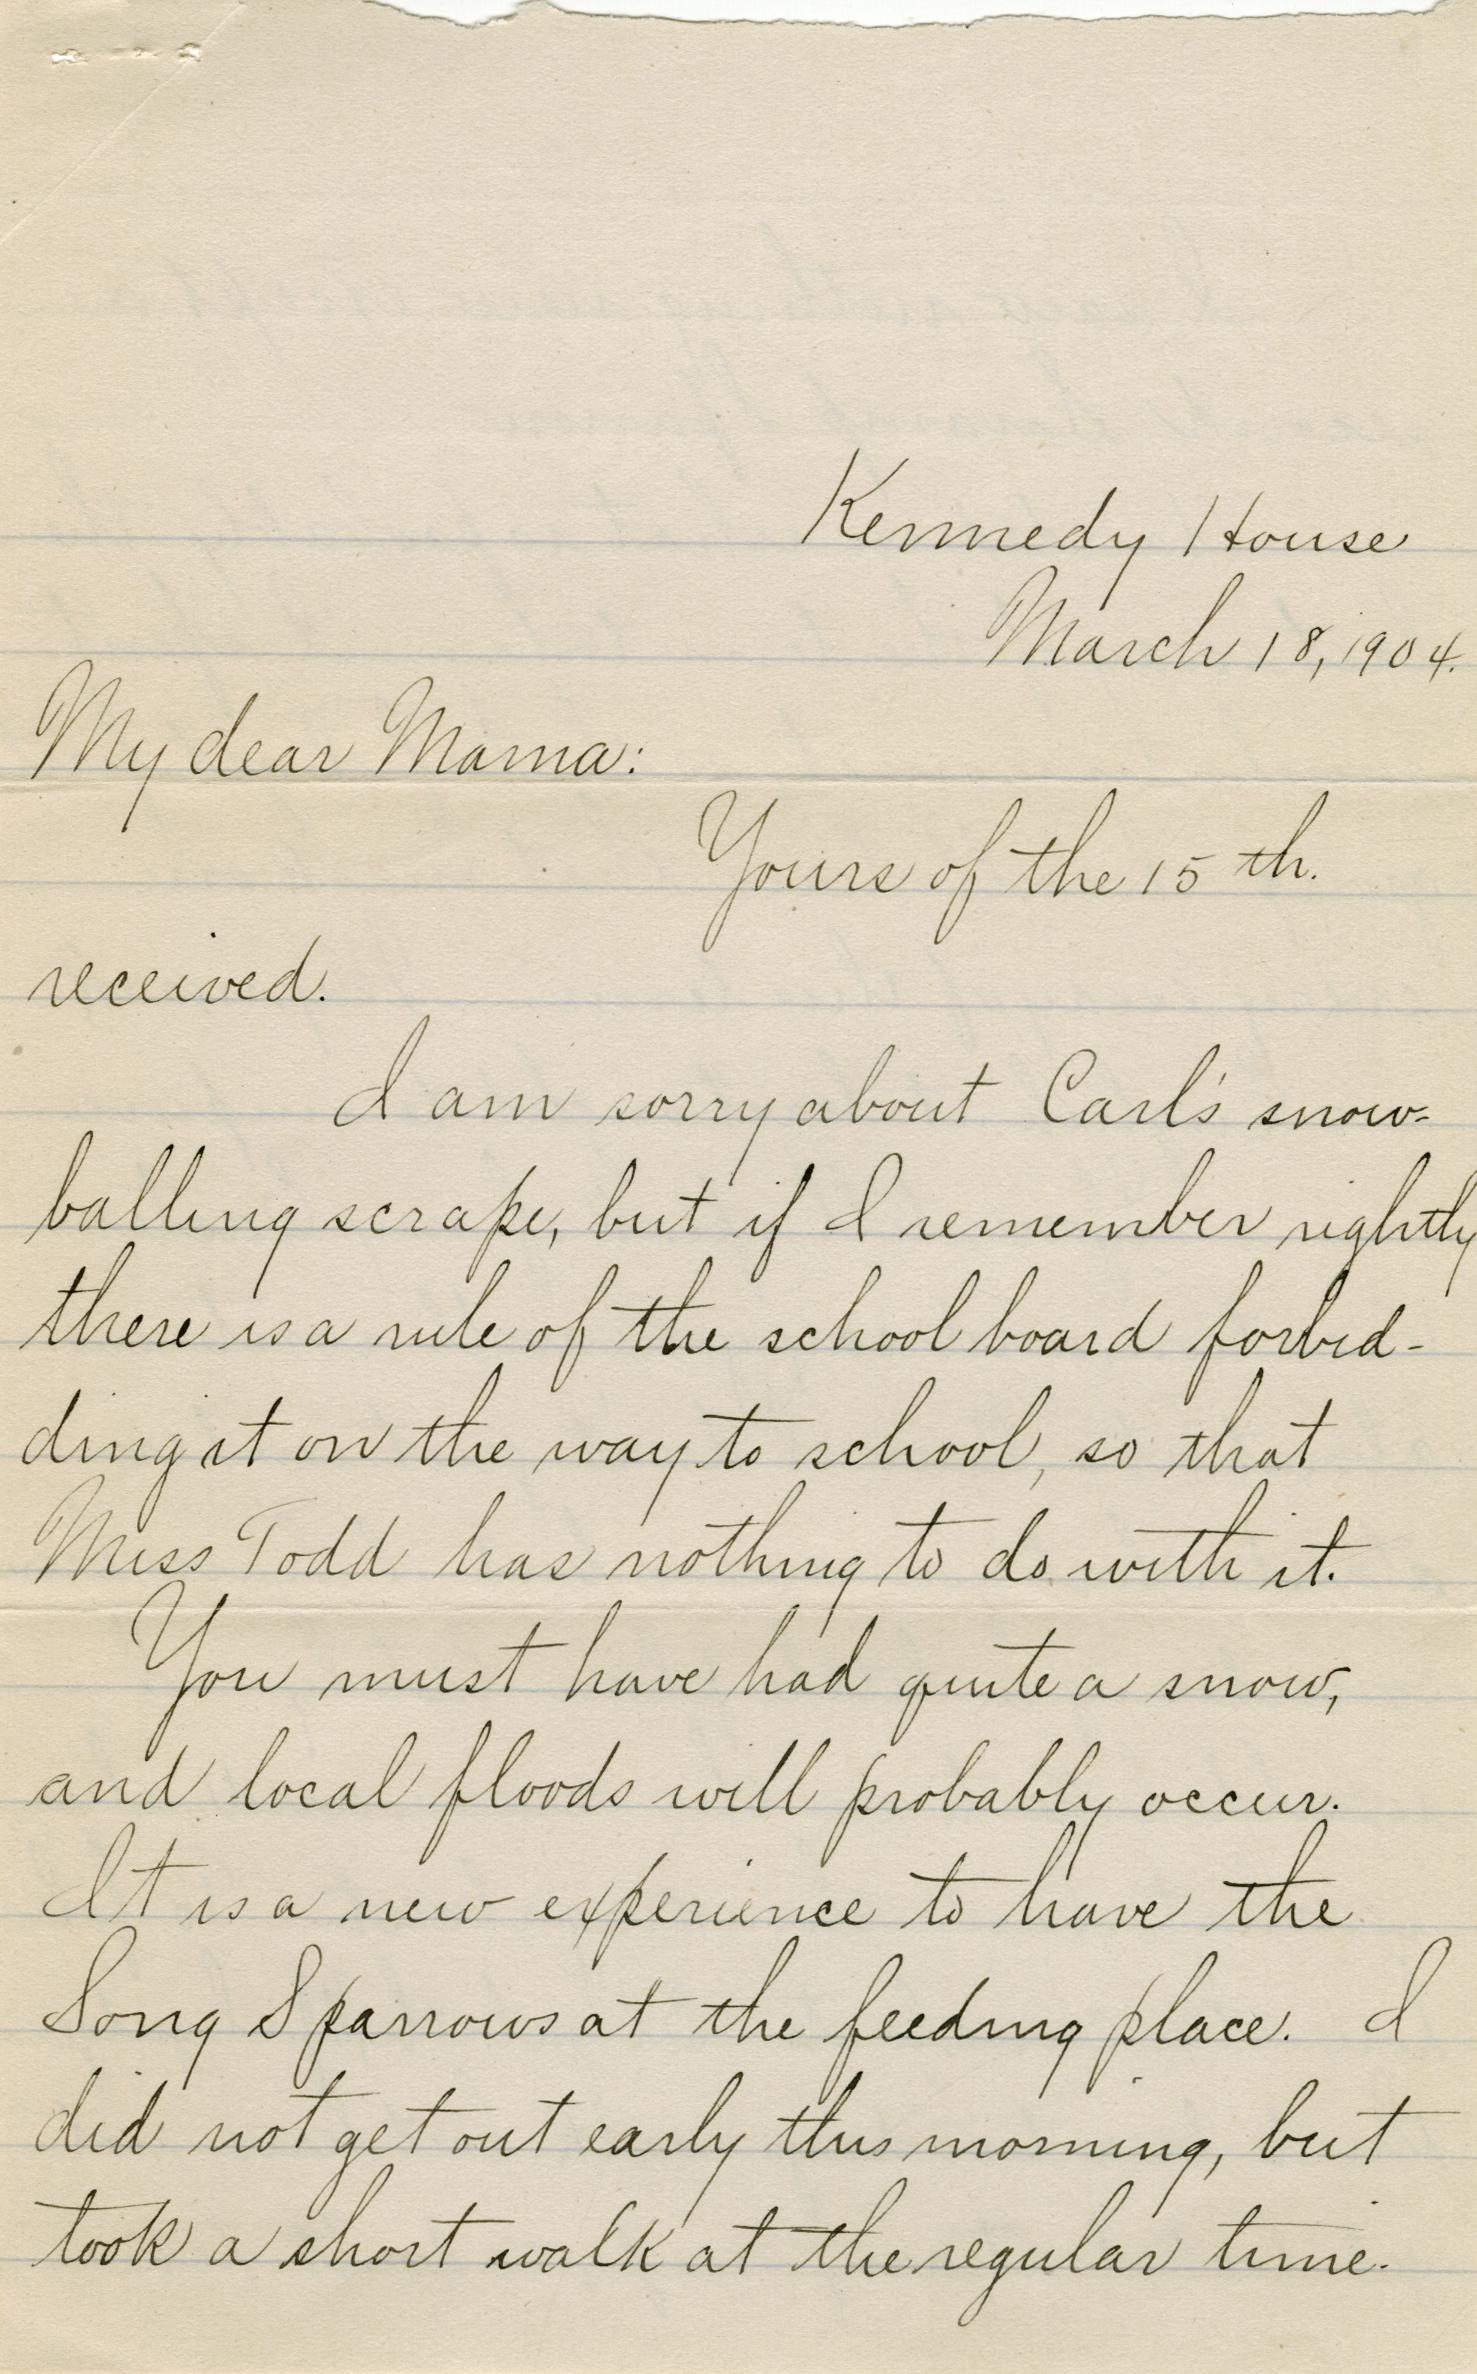 Kennedy House
March 18, 1904.
My dear Mama:
Yours of the 15th.
received.
I am sorry about Carl's snow-
balling scrape, but if I remember rightly
there is a rule of the school board forbid-
ding it on the way to school, so that
Miss Todd has nothing to do with it.
You must have had quite a snow,
and local floods will probably occur.
It is a new experience to have the
Song Sparrows at the feeding place. I
did not get out early this morning, but
took a short walk at the regular time.